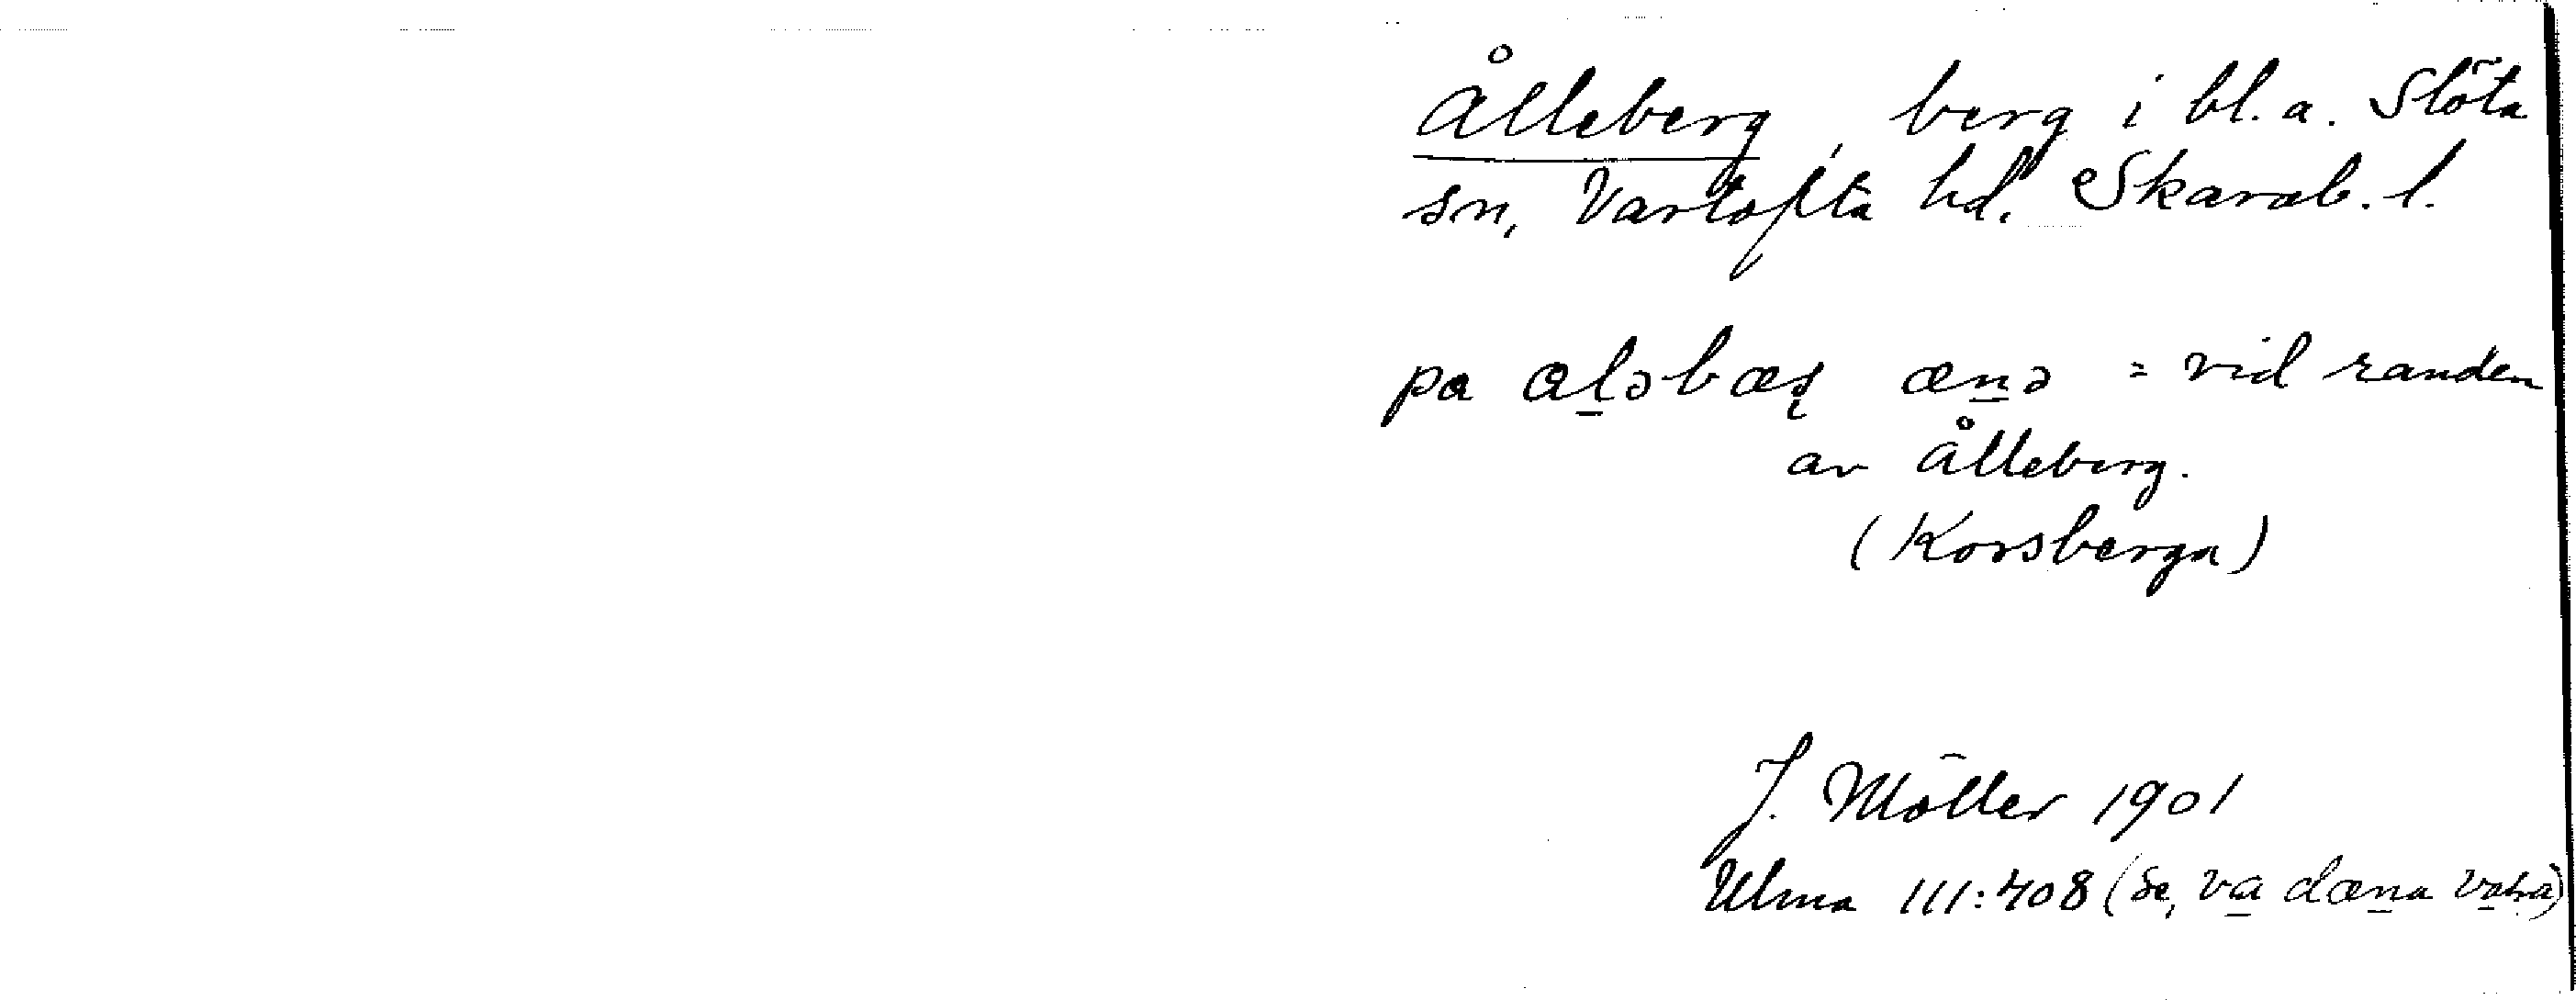 Ålleberg, berg i bl.a. Slöta
sn, Vartofta hd. Skarab. l.
pa aləbæȿ ænə = vid randen
av Ålleberg.
(Korsberga)
J. Möller 1901
Ulma 111:408 (Se, va dæna